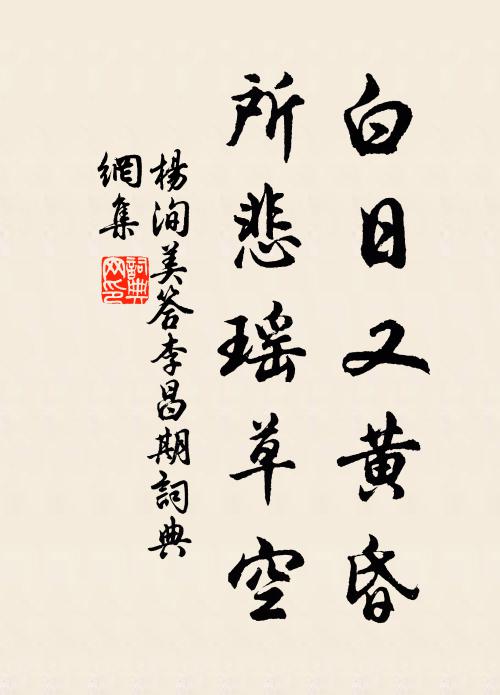 白日又黃昏
所悲瑶草空
楊洵美答李昌期詞典
網集
詞典
网印